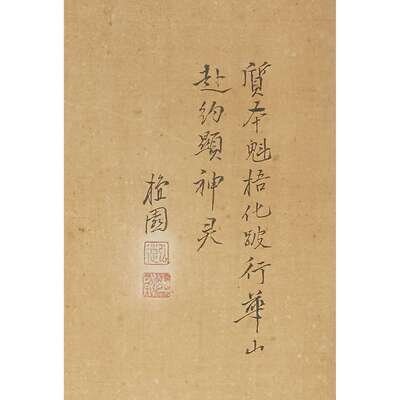 質本魁梧化跛行華山
赴約顯神灵
園